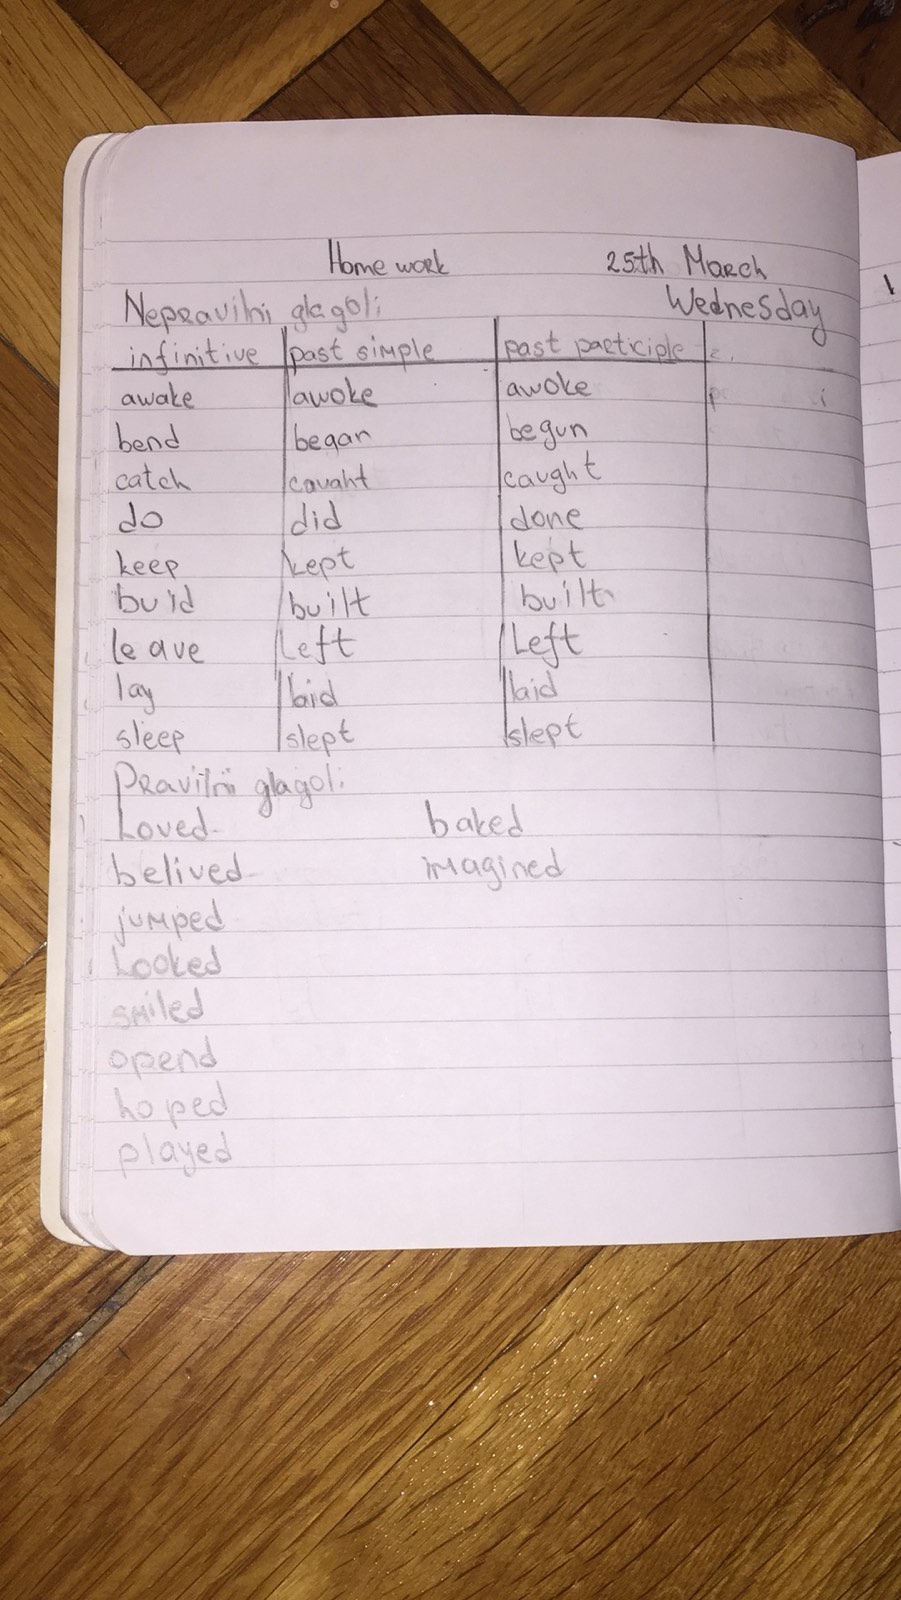 Homework 25th March
Nepravilni glagoli: Wednesday
infinitive past simple past participle
awake awoke awoke
bend began begun
catch caught caught
do did done
keep kept kept
build built built
leave Left Left
lay laid laid
sleep slept slept
Pravilni glagoli:
Loved baked
belived imagined
jumped
Looked
smiled
opend
hoped
played